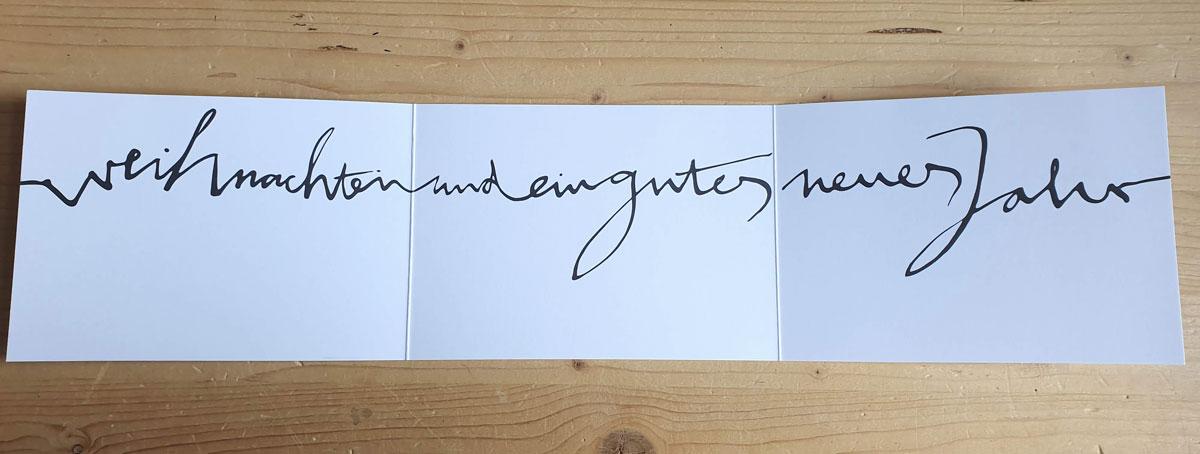 weihnachten und ein gutes neues Jahr